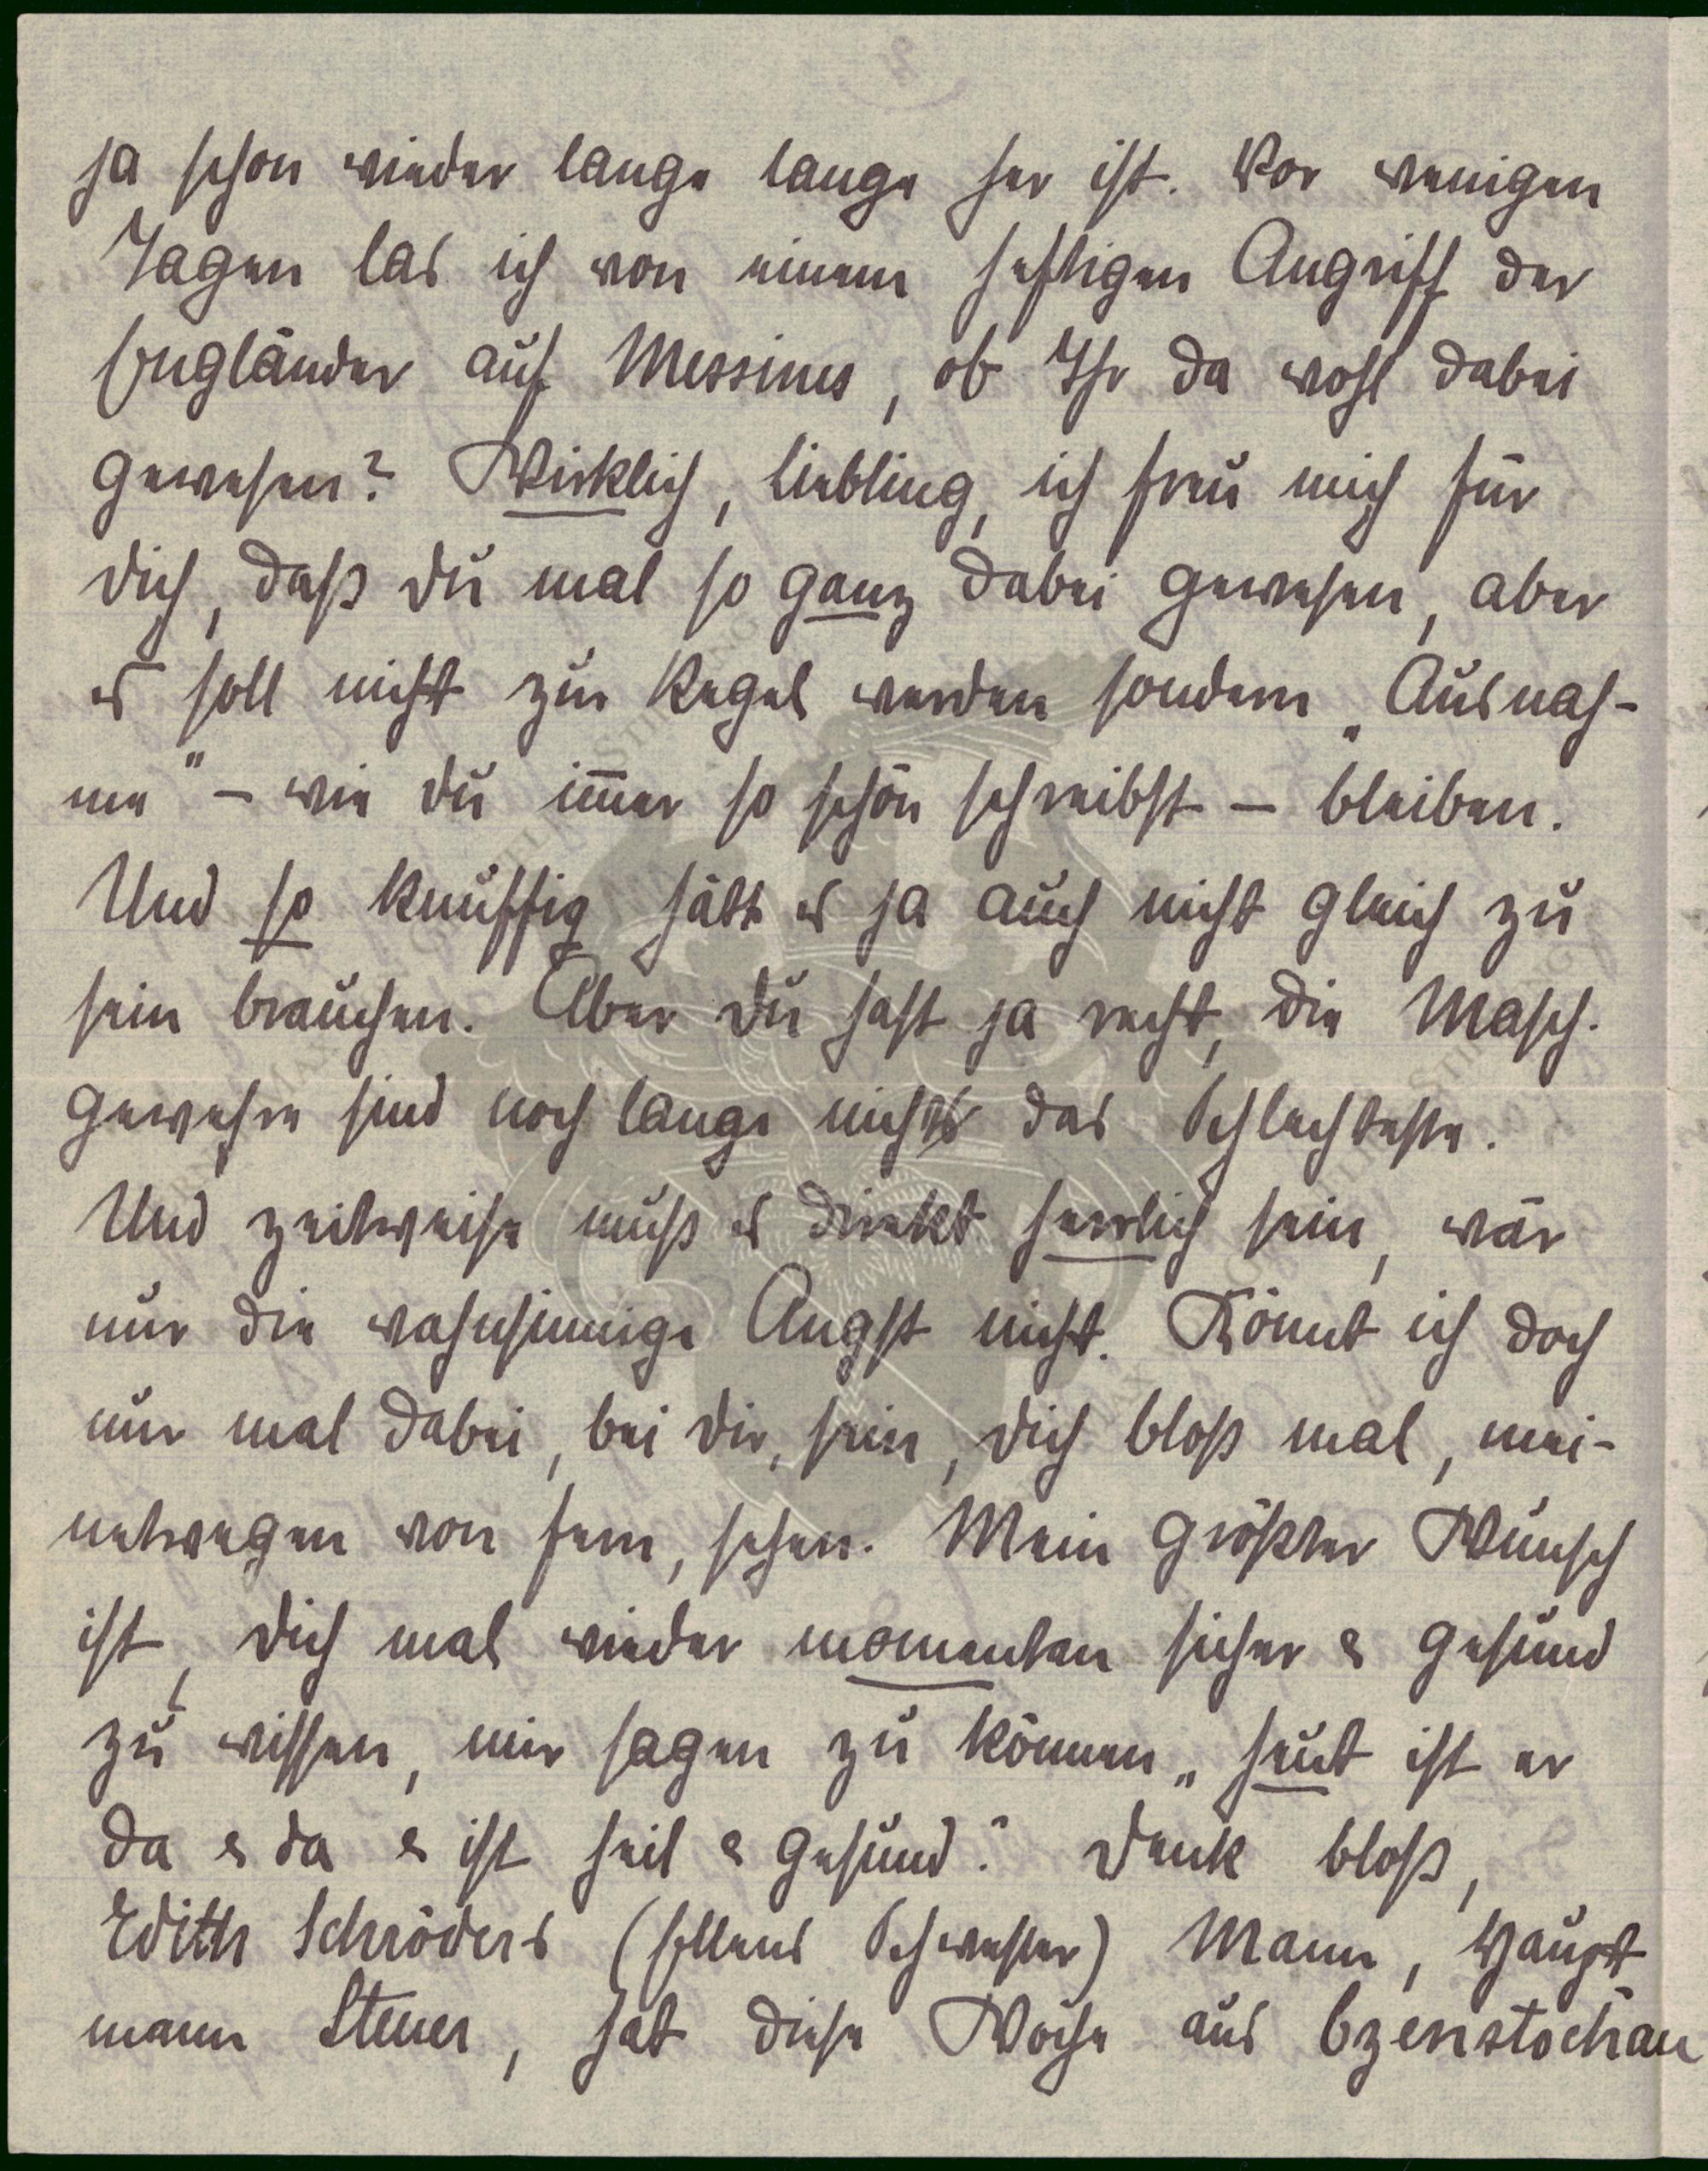 ja schon wieder lange lange her ist. Vor wenigen
Tagen las ich von einem heftigen Angriff der
Engländer auf Messines, ob Ihr da wohl dabei
gewesen? Wirklich, Liebling, ich freu mich für
dich, daß du mal so ganz dabei gewesen, aber
es soll nicht zur Regel werden sondern „Ausnah-
me" – wie du im̅er so schön schreibst – bleiben.
Und so knuffig hätt es ja auch nicht gleich zu
sein brauchen. Aber du hast ja recht, die Masch.
gewehre sind noch lange nicht das Schlechteste.
Und zeitweise muß es direkt herrlich sein, wär
nur die wahnsinnige Angst nicht. Könnt ich doch
nur mal dabei, bei dir, sein, dich bloß mal, mei-
netwegen von fern, sehen. Mein größter Wunsch
ist, dich mal wieder momentan sicher & gesund
zu wissen, mir sagen zu können „heut ist er
da & da & ist heil & gesund." Denk bloß,
Edith Schröders (Ellens Schwester) Mann, Haupt-
mann Steuer, hat diese Woche aus Czenstochau